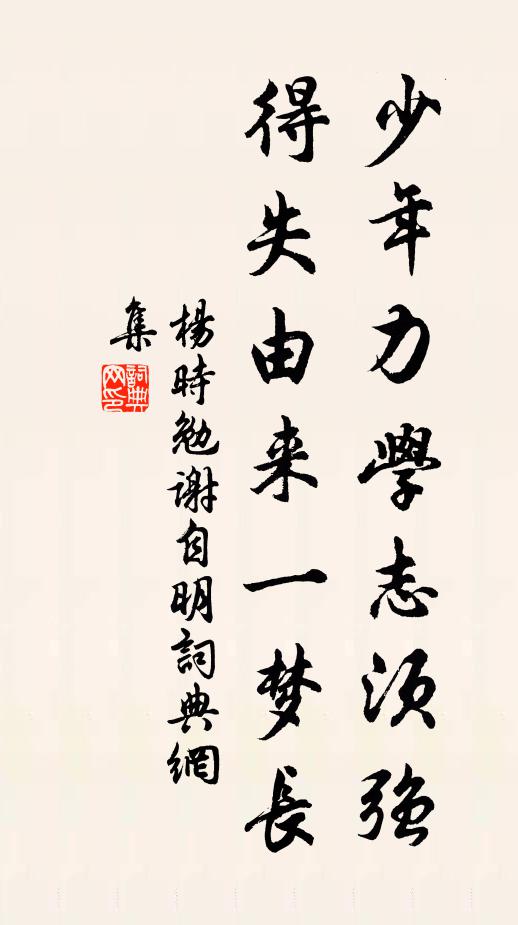 少年力學志須强
得失由来一梦長
楊時勉谢自明詞典網
集
詞典网印